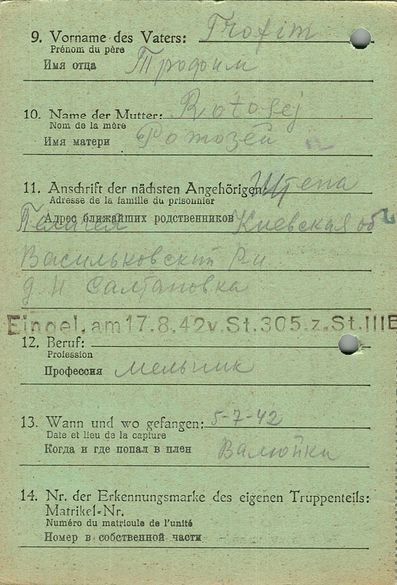 9. Vorname des Vaters: Trofim
Prénom du père
Имя отца Трофим
10. Name der Mutter: Rotosej
Nom de la mère
Имя матери Ротозей
11. Anschrift der nächsten Angehörigen:
Adresse de la famille du prisonnier
Адрес ближайших родственников Киевская об
Васильковский Р-н
д. Н Салтановка
Eingel. am 17.8.42 v. St. 305 z. St. III B
12. Beruf:
Profession
Профессия мельник
13. Wann und wo gefangen: 5-7-42
Date et lieu de la capture
Когда и где попал в плен Валюйки
14. Nr. der Erkennungsmarke des eigenen Truppenteils:
Matrikel-Nr.
Numéro du matricule de l'unité
Номер в собственной части